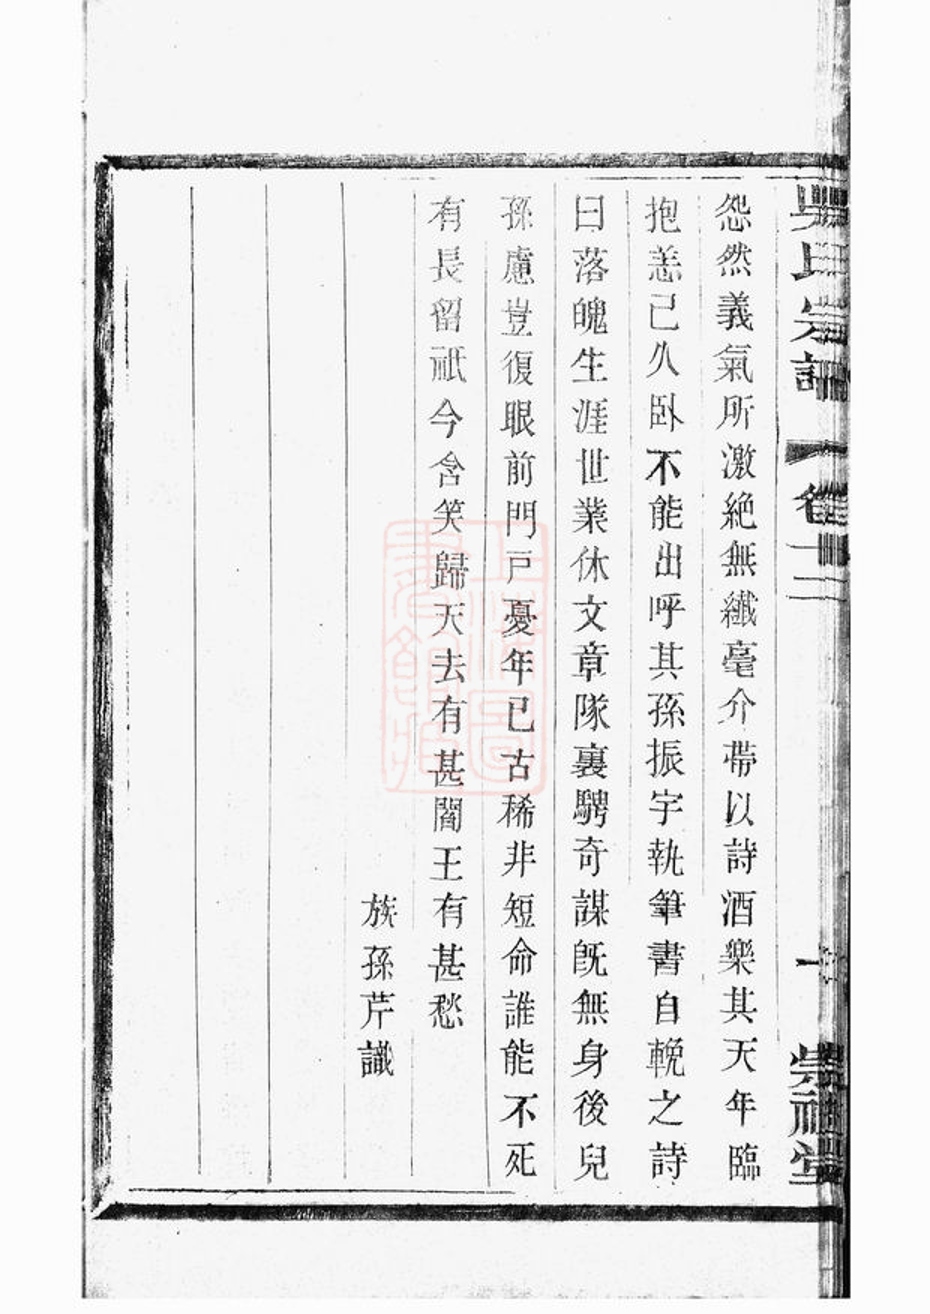 吳氏宗譜
卷十二
崇禮堂
怨然義氣所激絶無纖毫介蒂以詩酒樂其天年臨
抱恙己久卧不能出呼其孫振宇執筆書自輓之詩
曰落魄生涯世業休文章隊裏騁奇謀旣無身後兒
孫慮豈復眼前門戸憂年已古稀非短命誰能不死
有長留祇今含笑歸天去有甚閻王有甚愁
族孫芹識